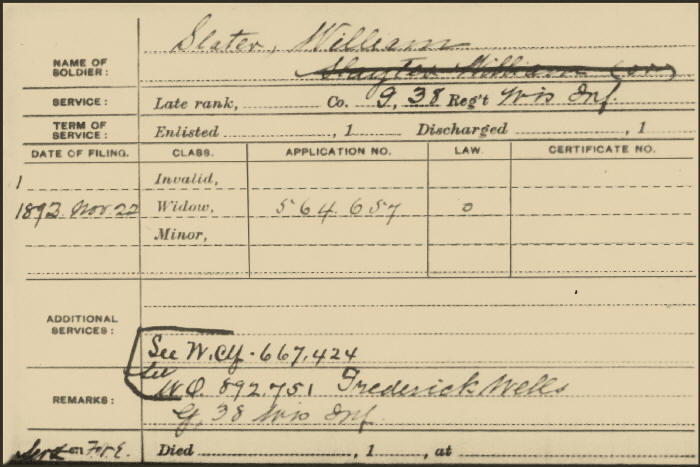 Slater, William
NAME OF SOLDIER:
Slayter William (or)
SERVICE: Late rank, Co. G, 38 Reg't Wis Inf.
TERM OF SERVICE: Enlisted , 1 Discharged , 1
DATE OF FILING. CLASS. APPLICATION NO. LAW. CERTIFICATE NO.
1 Invalid,
1893. Nov. 22 Widow, 564.657 0
Minor,
ADDITIONAL SERVICES:
See W. Ctf. 667,424
See
REMARKS: W.O. 892.751 Frederick Wells
G, 38 Wis Inf.
on Died , 1 , at